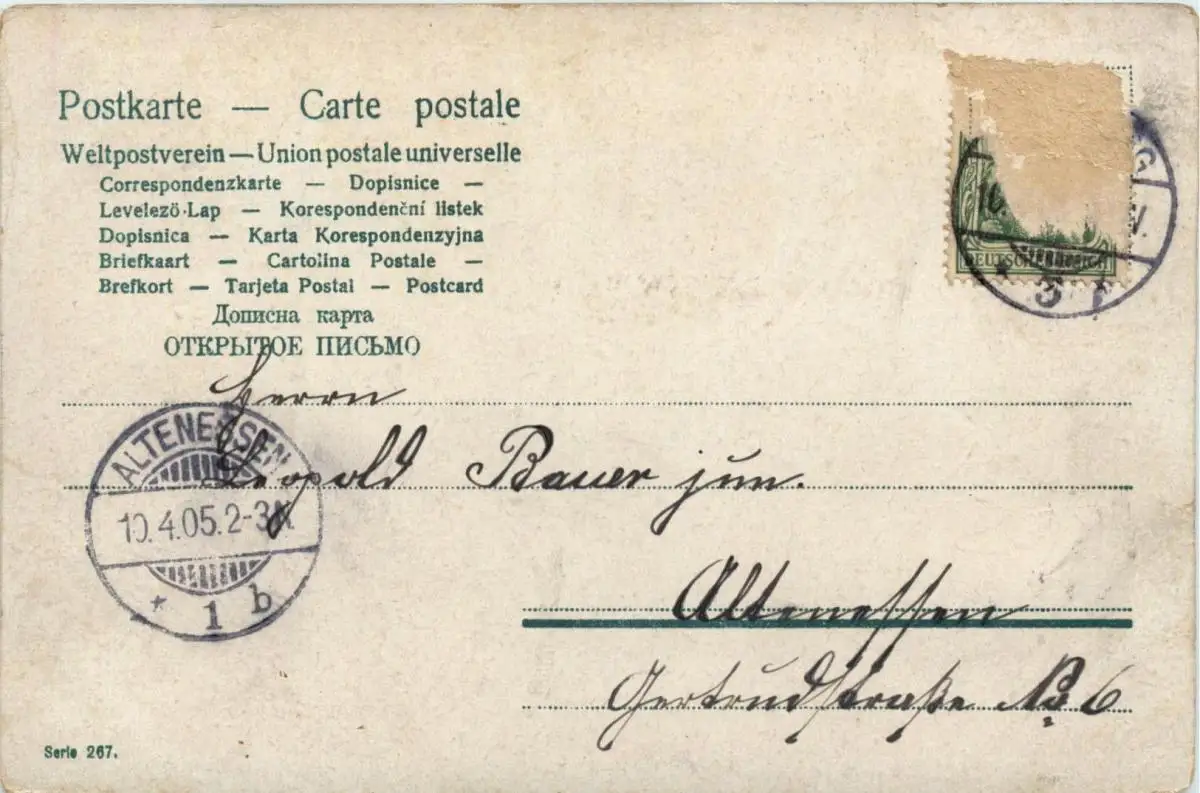 Postkarte — Carte postale
Weltpostverein — Union postale universelle
Correspondenzkarte — Dopisnice —
Levelező-Lap — Korespondenční listek
Dopisnica — Karta Korespondenzyjna
Briefkaart — Cartolina Postale —
Brefkort — Tarjeta Postal — Postcard
Дописна карта
ОТКРЫТОЕ ПИСЬМО
DEUTSCHES REICH
Herrn
Leopold Bauer jun.
Altenessen
Gertrudstraße No 6
ALTENESSEN
10.4.05.2-3N.
* 1 b
Serie 267.